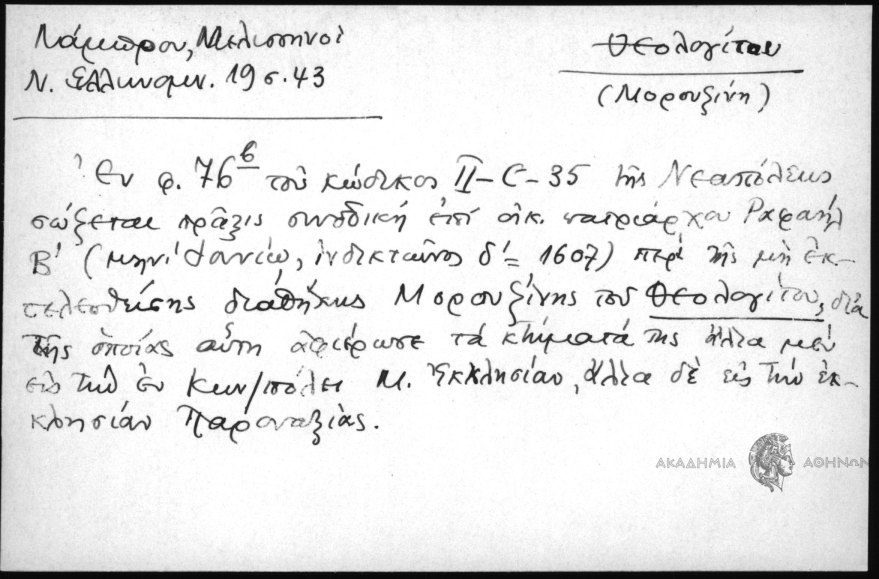 Λάμπρου, Μελισσηνοί
Ν. Ἑλληνομν. 19 σ. 43
Θεολογίτου
(Μορουζίνη)
Ἐν φ. 76β τοῦ κώδικος II-C-35 τῆς Νεαπόλεως
σώζεται πρᾶξις συνοδική ἐπί οἰκ. πατριάρχου Ραφαήλ
Β' (μηνί Ἰουνίῳ, ἰνδικτιῶνος δ' = 1607) περί τῆς μή ἐκ-
τελεσθείσης διαθήκης Μορουζίνης τοῦ Θεολογίτου, διά
τῆς ὁποίας αὕτη ἀφιέρωσε τά κτήματά της ἄλλα μέν
εἰς τήν ἐν Κων/πόλει Μ. Ἐκκλησίαν, ἄλλα δέ εἰς τήν ἐκ-
κλησίαν Παροναξίας.
ΑΚΑΔΗΜΙΑ ΑΘΗΝΩΝ